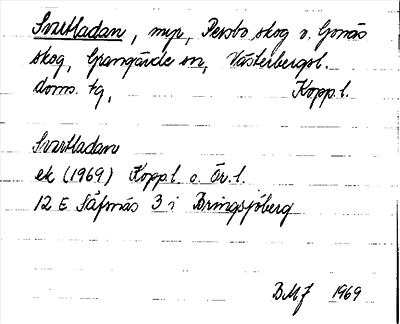 Svartladan, myr, Persbo skog o. Gonäs
skog, Grangärde sn, Västerbergsl.
doms. tg, Kopp.l.
Svartladan
ek (1969) Kopp.l. o. Ör.l.
12 E Säfsnäs 3 i Bringsjöberg
BMJ 1969